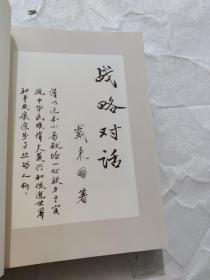 战略对话
戴秉国 著
谨以这本小书献给一切致力于实
现中华民族伟大复兴和促进世界
和平发展进步事业的人们。